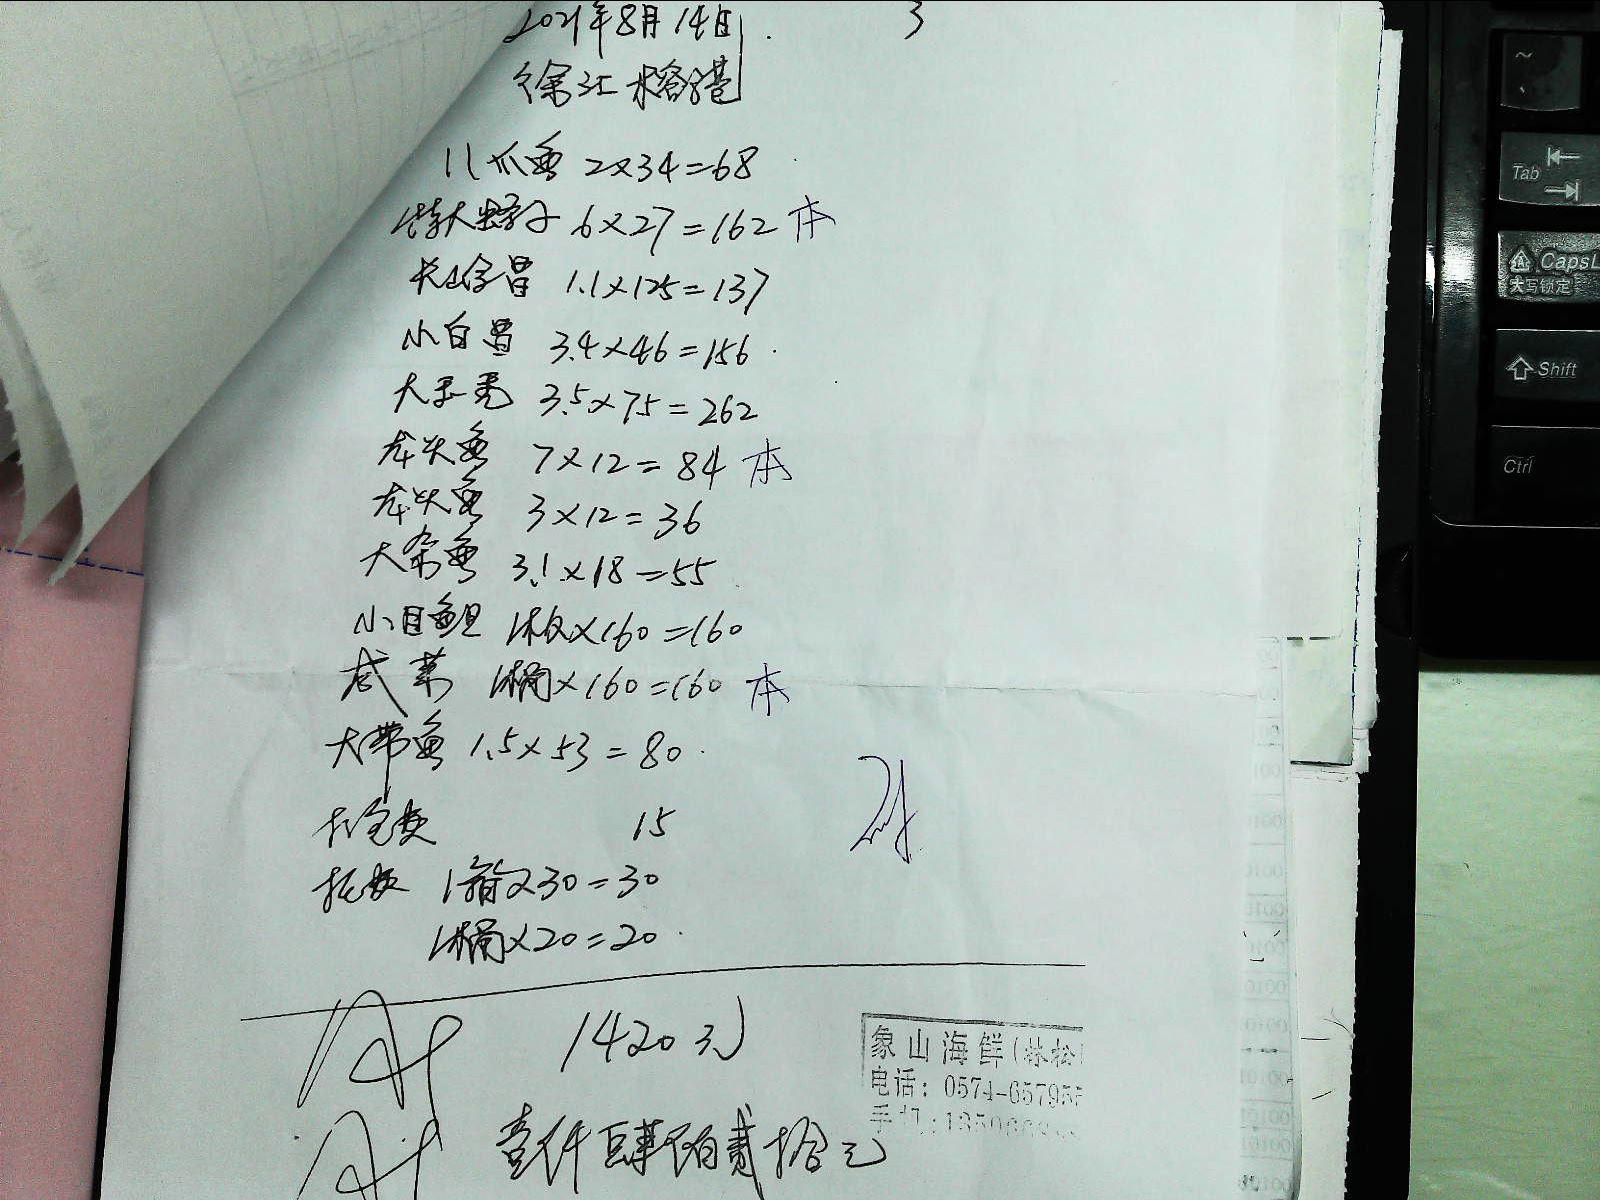 2021年8月14日 3
徐汇榕港
八爪鱼 2×34=68
特大蛏子 6×27=162 本
长山金昌 1.1×125=137
小白昌 3.4×46=156
大玉秃 3.5×75=262
龙头鱼 7×12=84 本
龙头鱼 3×12=36
大杂鱼 3.1×18=55
小目鱼 1板×160=160
咸菜 1桶×160=160 本
大带鱼 1.5×53=80
15
托板 1箱×30=30
1桶×20=20
1420元
壹仟肆佰贰拾元
象山海鲜(林松
电话: 0574-65795
手机:
~
Tab
CapsL
大写锁定
Shift
Ctrl